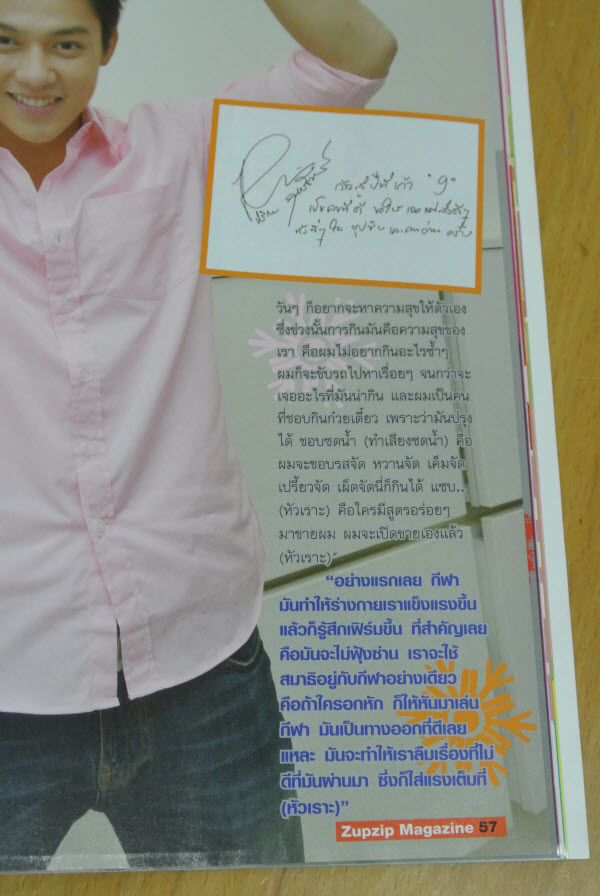 "9"
วันๆ ก็อยากจะหาความสุขให้ตัวเอง
ซึ่งช่วงนั้นการกินมันคือความสุขของ
เรา คือผมไม่อยากกินอะไรซ้ำๆ
ผมก็จะขับรถไปหาเรื่อยๆ จนกว่าจะ
เจออะไรที่มันน่ากิน และผมเป็นคน
ที่ชอบกินก๋วยเตี๋ยว เพราะว่ามันปรุง
ได้ ชอบซดน้ำ (ทำเสียงซดน้ำ) คือ
ผมจะชอบรสจัด หวานจัด เค็มจัด
เปรี้ยวจัด เผ็ดจัดนี่ก็กินได้ แซบ..
(หัวเราะ) คือใครมีสูตรอร่อยๆ
มาขายผม ผมจะเปิดขายเองแล้ว
(หัวเราะ)"
"อย่างแรกเลย กีฬา
มันทำให้ร่างกายเราแข็งแรงขึ้น
แล้วก็รู้สึกเฟิร์มขึ้น ที่สำคัญเลย
คือมันจะไม่ฟุ้งซ่าน เราจะใช้
สมาธิอยู่กับกีฬาอย่างเดียว
คือถ้าใครอกหัก ก็ให้หันมาเล่น
กีฬา มันเป็นทางออกที่ดีเลย
แหละ มันจะทำให้เราลืมเรื่องที่ไม่
ดีที่มันผ่านมา ซึ่งก็ใส่แรงเต็มที่
(หัวเราะ)"
Zupzip Magazine 57